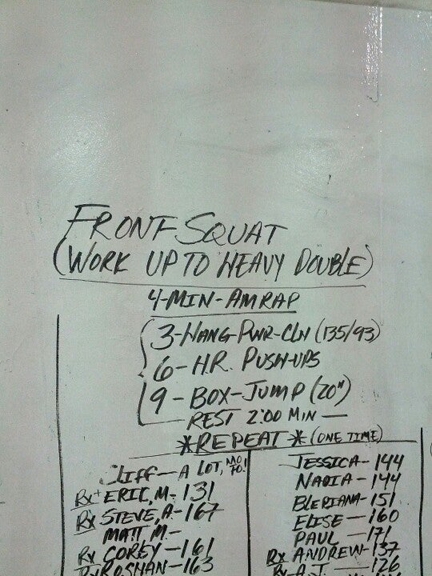 FRONT SQUAT
(WORK UP TO HEAVY DOUBLE)
4-MIN-AMRAP
3-HANG-PWR-CLN (135/93)
6-H.R. PUSH-UPS
9-BOX-JUMP (20")
REST 2:00 MIN—
*REPEAT* (ONE TIME)
CLIFF—A LOT, MO FO!
Rx ERIC, M.-131
Rx STEVE, A-167
MATT, M.-
Rx COREY-161
Rx ROSHAN-163
JESSICA-144
NADIA-144
BLERIANA-151
ELISE-160
PAUL-171
Rx ANDREW-137
Rx A.J.—126